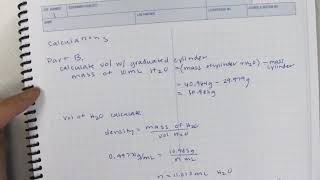 Calculations
Part B,
calculate vol w/ graduated cylinder
mass of 10mL H₂O = (mass of cylinder + H₂O) - mass cylinder
= 40.964g - 29.979g
= 10.985g
Vol of H₂O calculate
density = mass of H₂O / vol H₂O
= 10.985g / n mL
H₂O